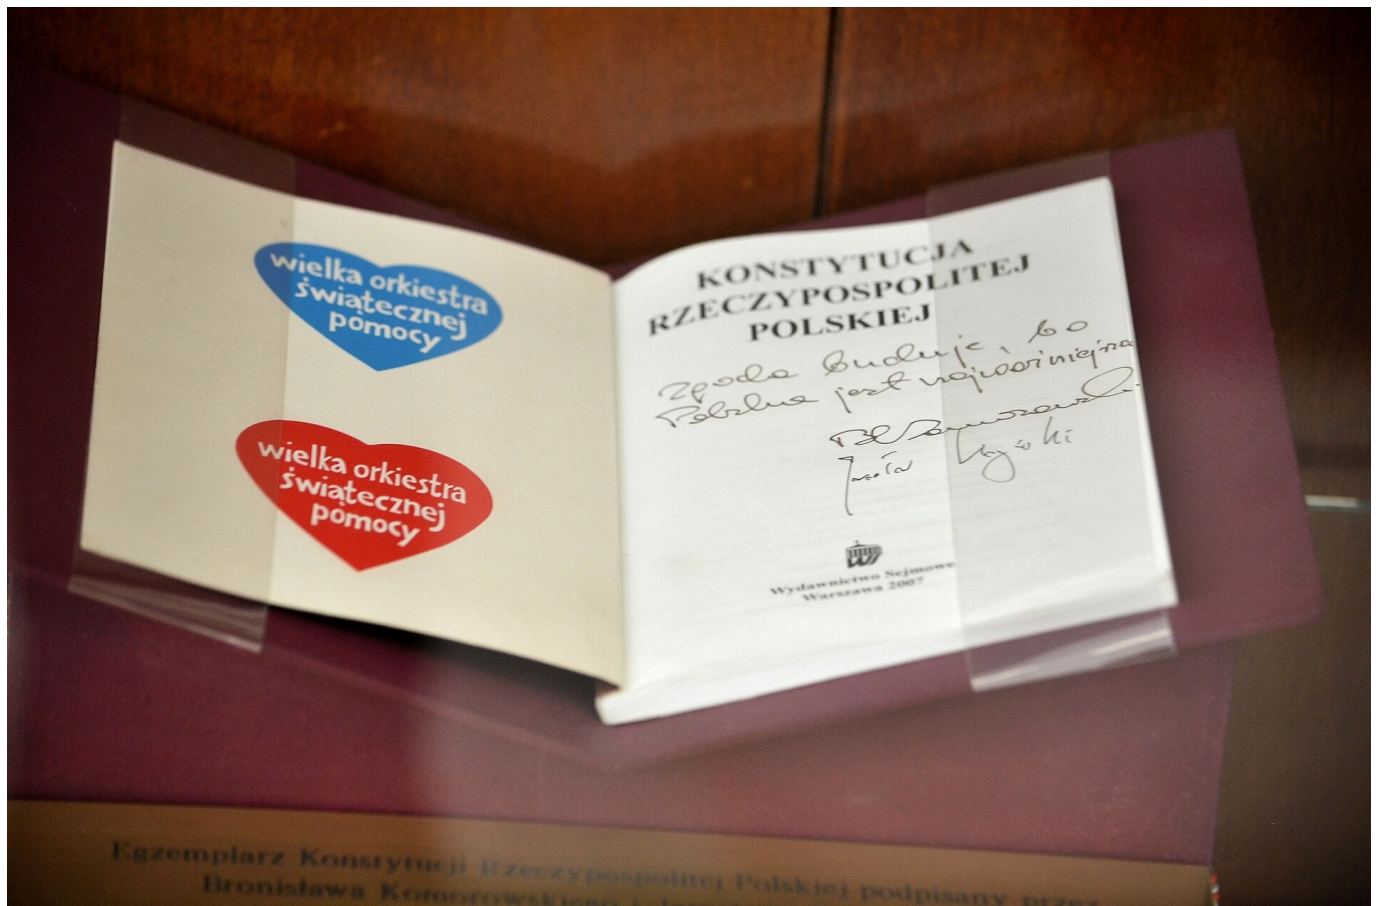 wielka orkiestra
świątecznej
pomocy
wielka orkiestra
świątecznej
pomocy
KONSTYTUCJA
RZECZYPOSPOLITEJ
POLSKIEJ
Zgoda buduje, bo
Polska jest najważniejsza
BKomorowski
Wydawnictwo Sejmowe
Warszawa 2007
Egzemplarz Konstytucji Rzeczypospolitej Polskiej podpisany przez
Bronisława Komorowskiego i